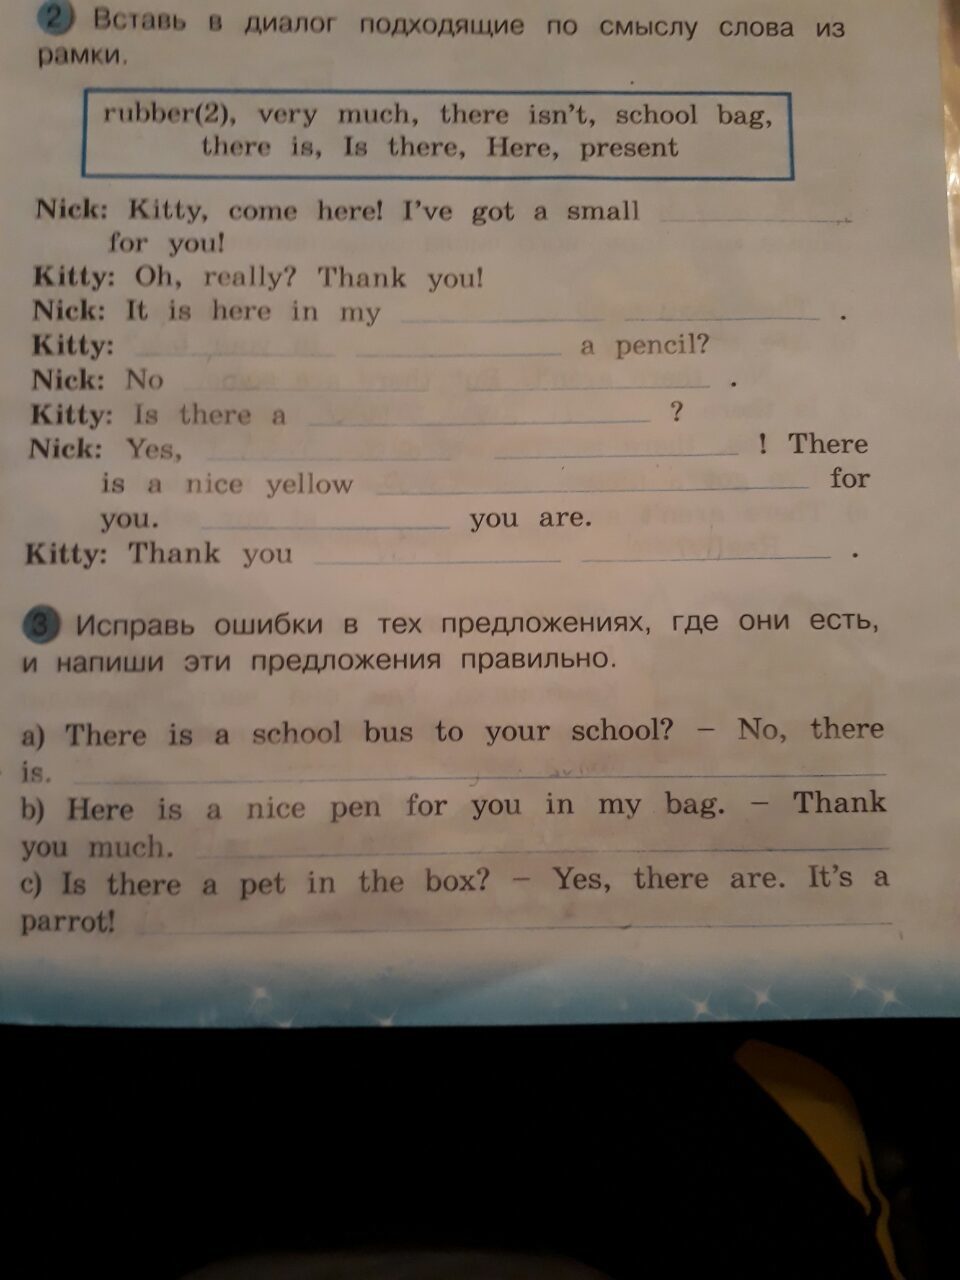 2 Вставь в диалог подходящие по смыслу слова из
рамки.
rubber(2), very much, there isn't, school bag,
there is, Is there, Here, present
Nick: Kitty, come here! I've got a small
for you!
Kitty: Oh, really? Thank you!
Nick: It is here in my .
Kitty: a pencil?
Nick: No .
Kitty: Is there a ?
Nick: Yes, ! There
is a nice yellow for
you. you are.
Kitty: Thank you .
3 Исправь ошибки в тех предложениях, где они есть,
и напиши эти предложения правильно.
a) There is a school bus to your school? – No, there
is.
b) Here is a nice pen for you in my bag. – Thank
you much.
c) Is there a pet in the box? – Yes, there are. It's a
parrot!